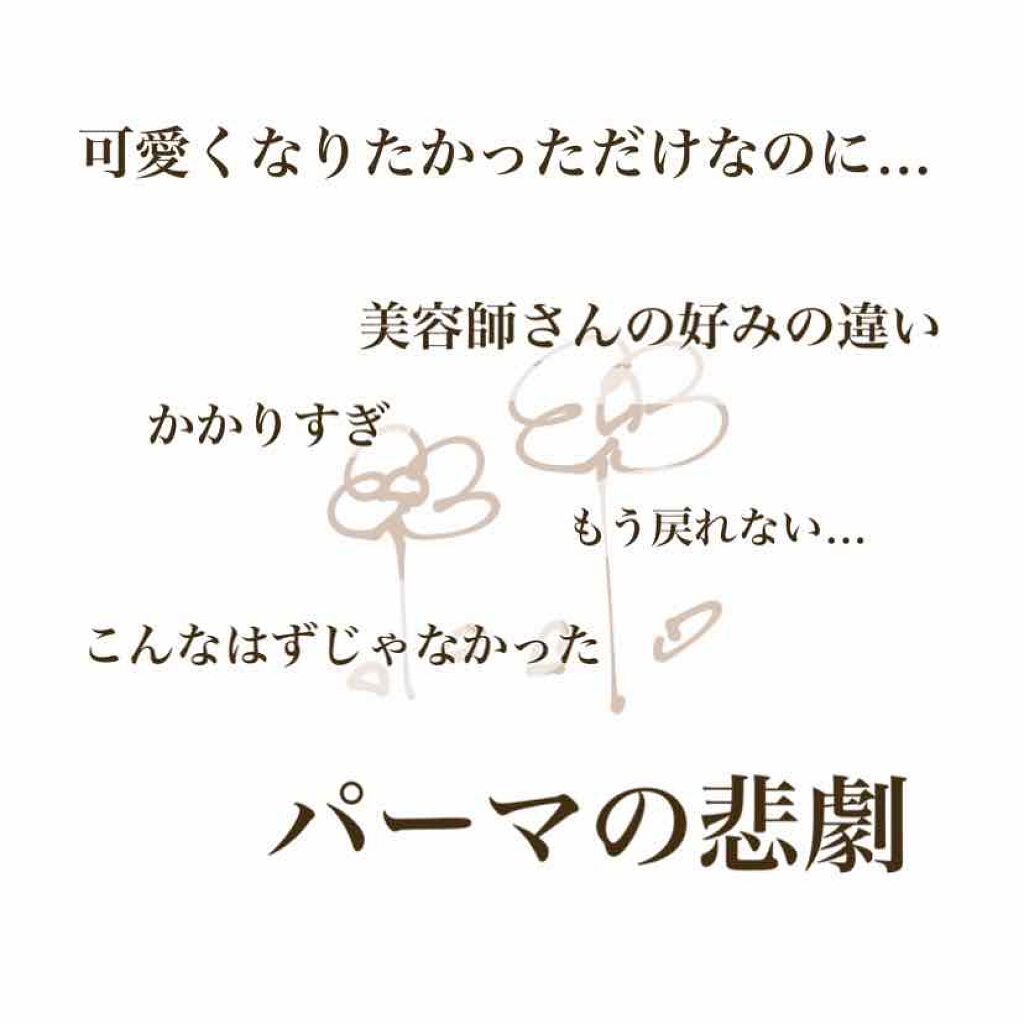 可愛くなりたかっただけなのに…
美容師さんの好みの違い
かかりすぎ
もう戻れない…
こんなはずじゃなかった
パーマの悲劇